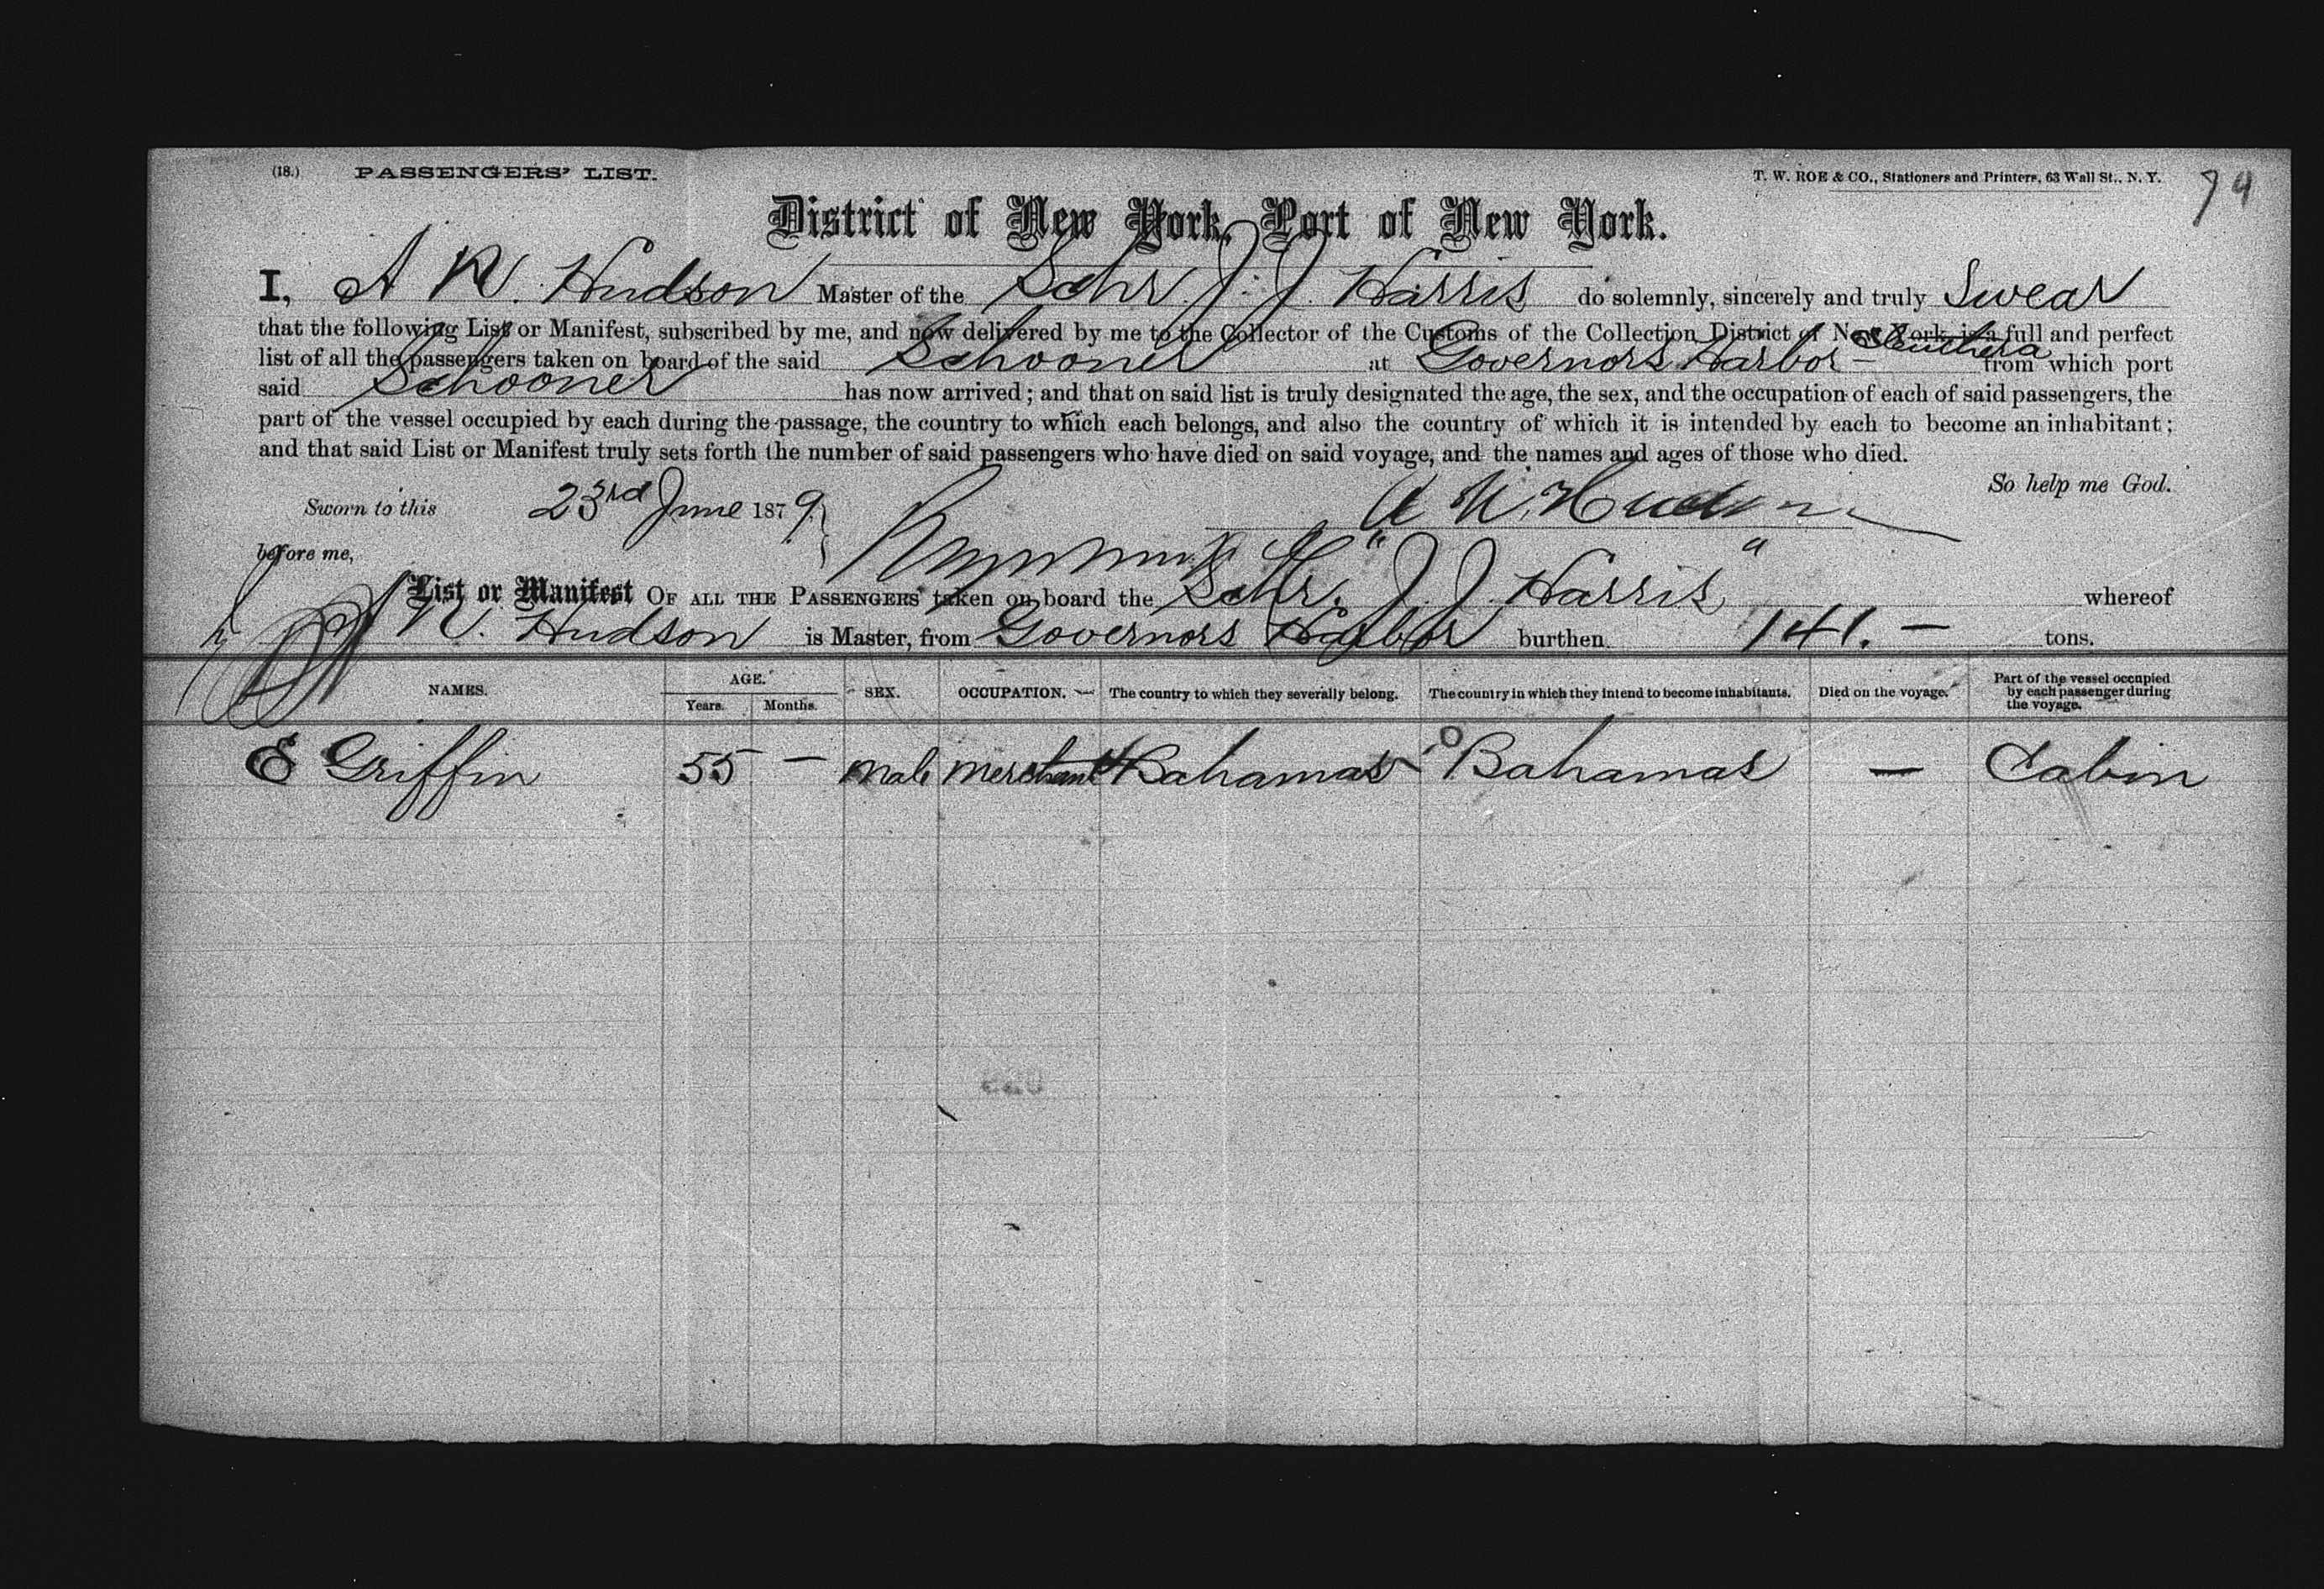 (18.) PASSENGERS' LIST. T. W. ROE & CO., Stationers and Printers, 63 Wall St., N. Y. 74
District of New York, Port of New York.
I, A W. Hudson Master of the Schr J. J. Harris do solemnly, sincerely and truly Swear
that the following List or Manifest, subscribed by me, and now delivered by me to the Collector of the Customs of the Collection District of New York, is a full and perfect
list of all the passengers taken on board of the said Schooner at Governors Harbor Eleuthera from which port
said Schooner has now arrived; and that on said list is truly designated the age, the sex, and the occupation of each of said passengers, the
part of the vessel occupied by each during the passage, the country to which each belongs, and also the country of which it is intended by each to become an inhabitant;
and that said List or Manifest truly sets forth the number of said passengers who have died on said voyage, and the names and ages of those who died.
So help me God.
Sworn to this 23rd June 1879. A W. Hudson
before me,
List or Manifest OF ALL THE PASSENGERS taken on board the Schr. "J. J. Harris" whereof
A W. Hudson is Master, from Governors Harbor burthen 141. — tons.
NAMES. AGE. Years. Months. SEX. OCCUPATION. The country to which they severally belong. The country in which they intend to become inhabitants. Died on the voyage. Part of the vessel occupied by each passenger during the voyage.
E Griffin 55 — male merchant Bahamas Bahamas — Cabin